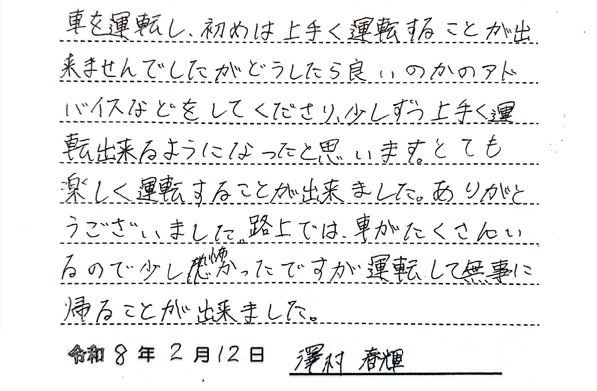 車を運転し、初めは上手く運転することが出
来ませんでしたがどうしたら良いのかのアド
バイスなどをしてくださり、少しずつ上手く運
転出来るようになったと思います。とても
楽しく運転することが出来ました。ありがと
うございました。路上では、車がたくさんい
るので少し怖かったですが運転して無事に
帰ることが出来ました。
令和 8 年 2 月 12 日 澤村 春輝